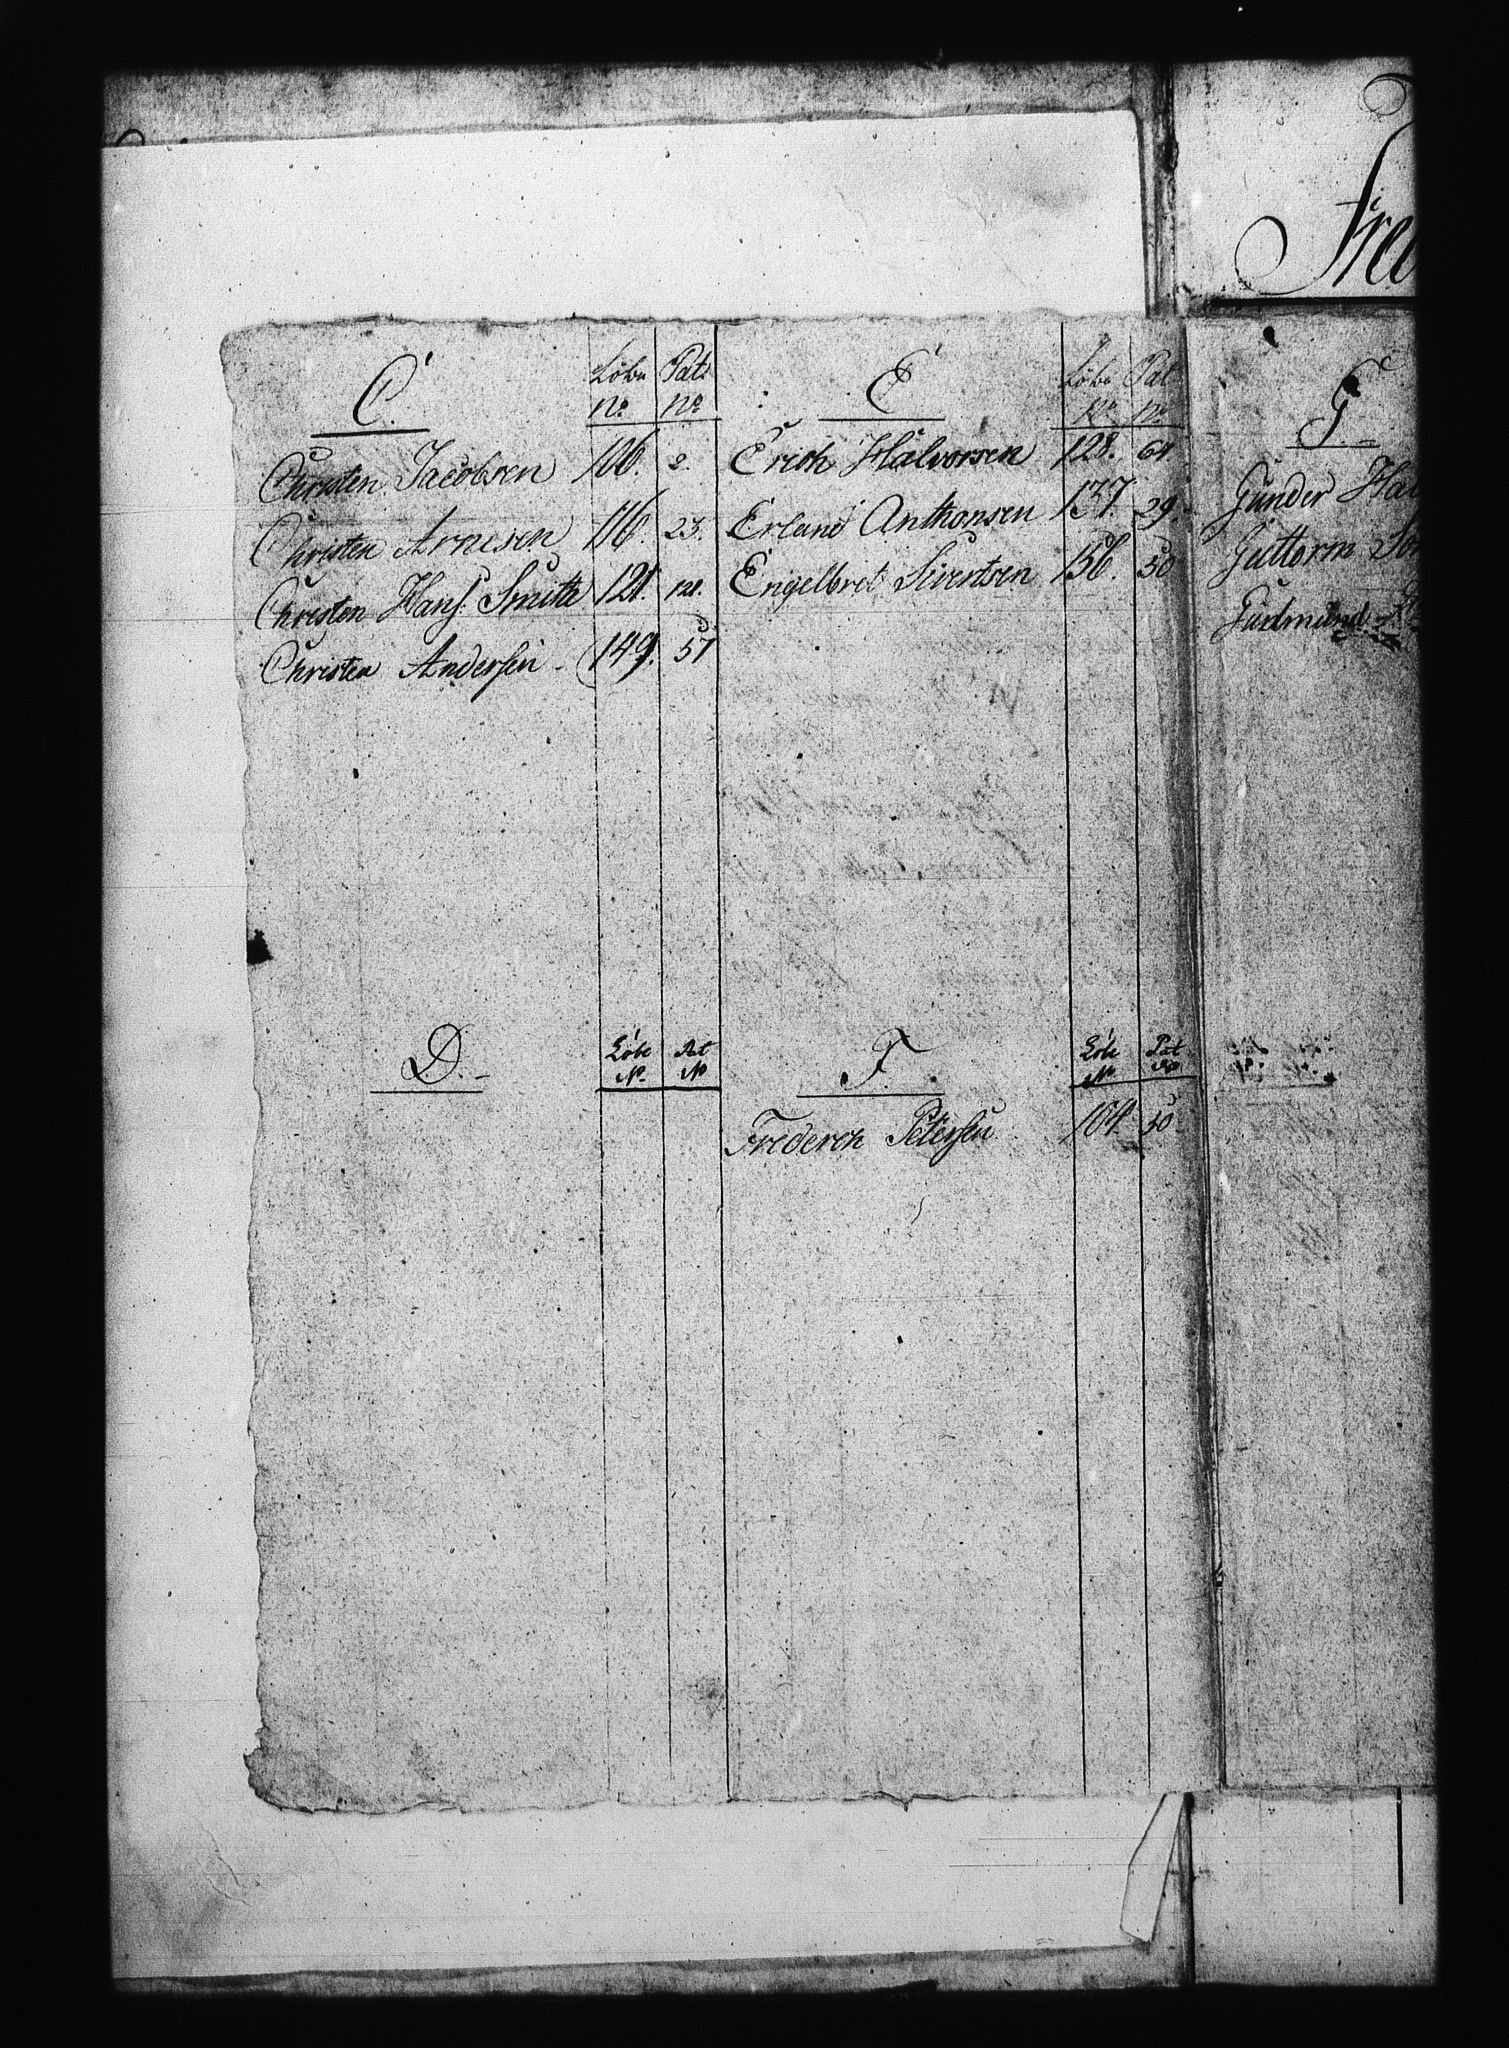 C.
Löbe Pat.
No No
Christen Jacobsen 106. 2.
Christen Arnesen 116. 23.
Christen Hans. Smith 121. 121.
Christen Andersen - 149. 57
D. -
Löbe Pat
No No
E
Löbe Pat
No No
Erich Halvorsen 128. 64
Erland Anthonsen 137. 29.
Engelbret Sivertsen 156. 50
F.
Löbe Pat
No No
Frederch Petersen 104. 50.
Fre
G. -
Gunder
Guttorm
Gudmund